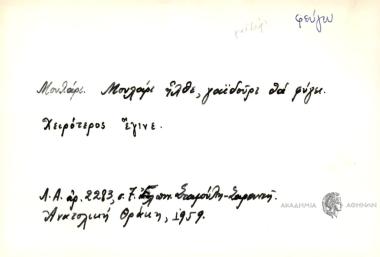 φεύγω
Μουλάρι. Μουλάρι ἦλθε, γαϊδοῦρι θά φύγει.
Χειρότερος ἔγινε.
Λ.Α. ἀρ. 2283, σ. 7. Ἐλπιν. Σταμούλη-Σαραντῆ.
Ἀνατολική Θράκη, 1959.
ΑΚΑΔΗΜΙΑ ΑΘΗΝΩΝ